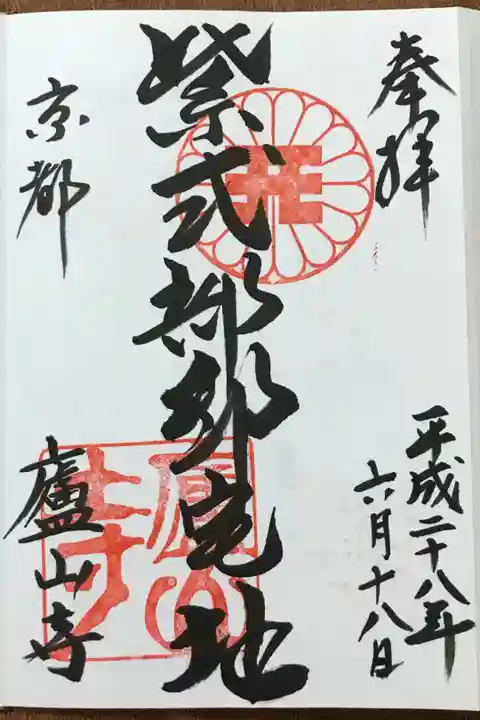 奉拝
平成二十八年
六月十八日
紫式部邸宅地
京都
廬山寺